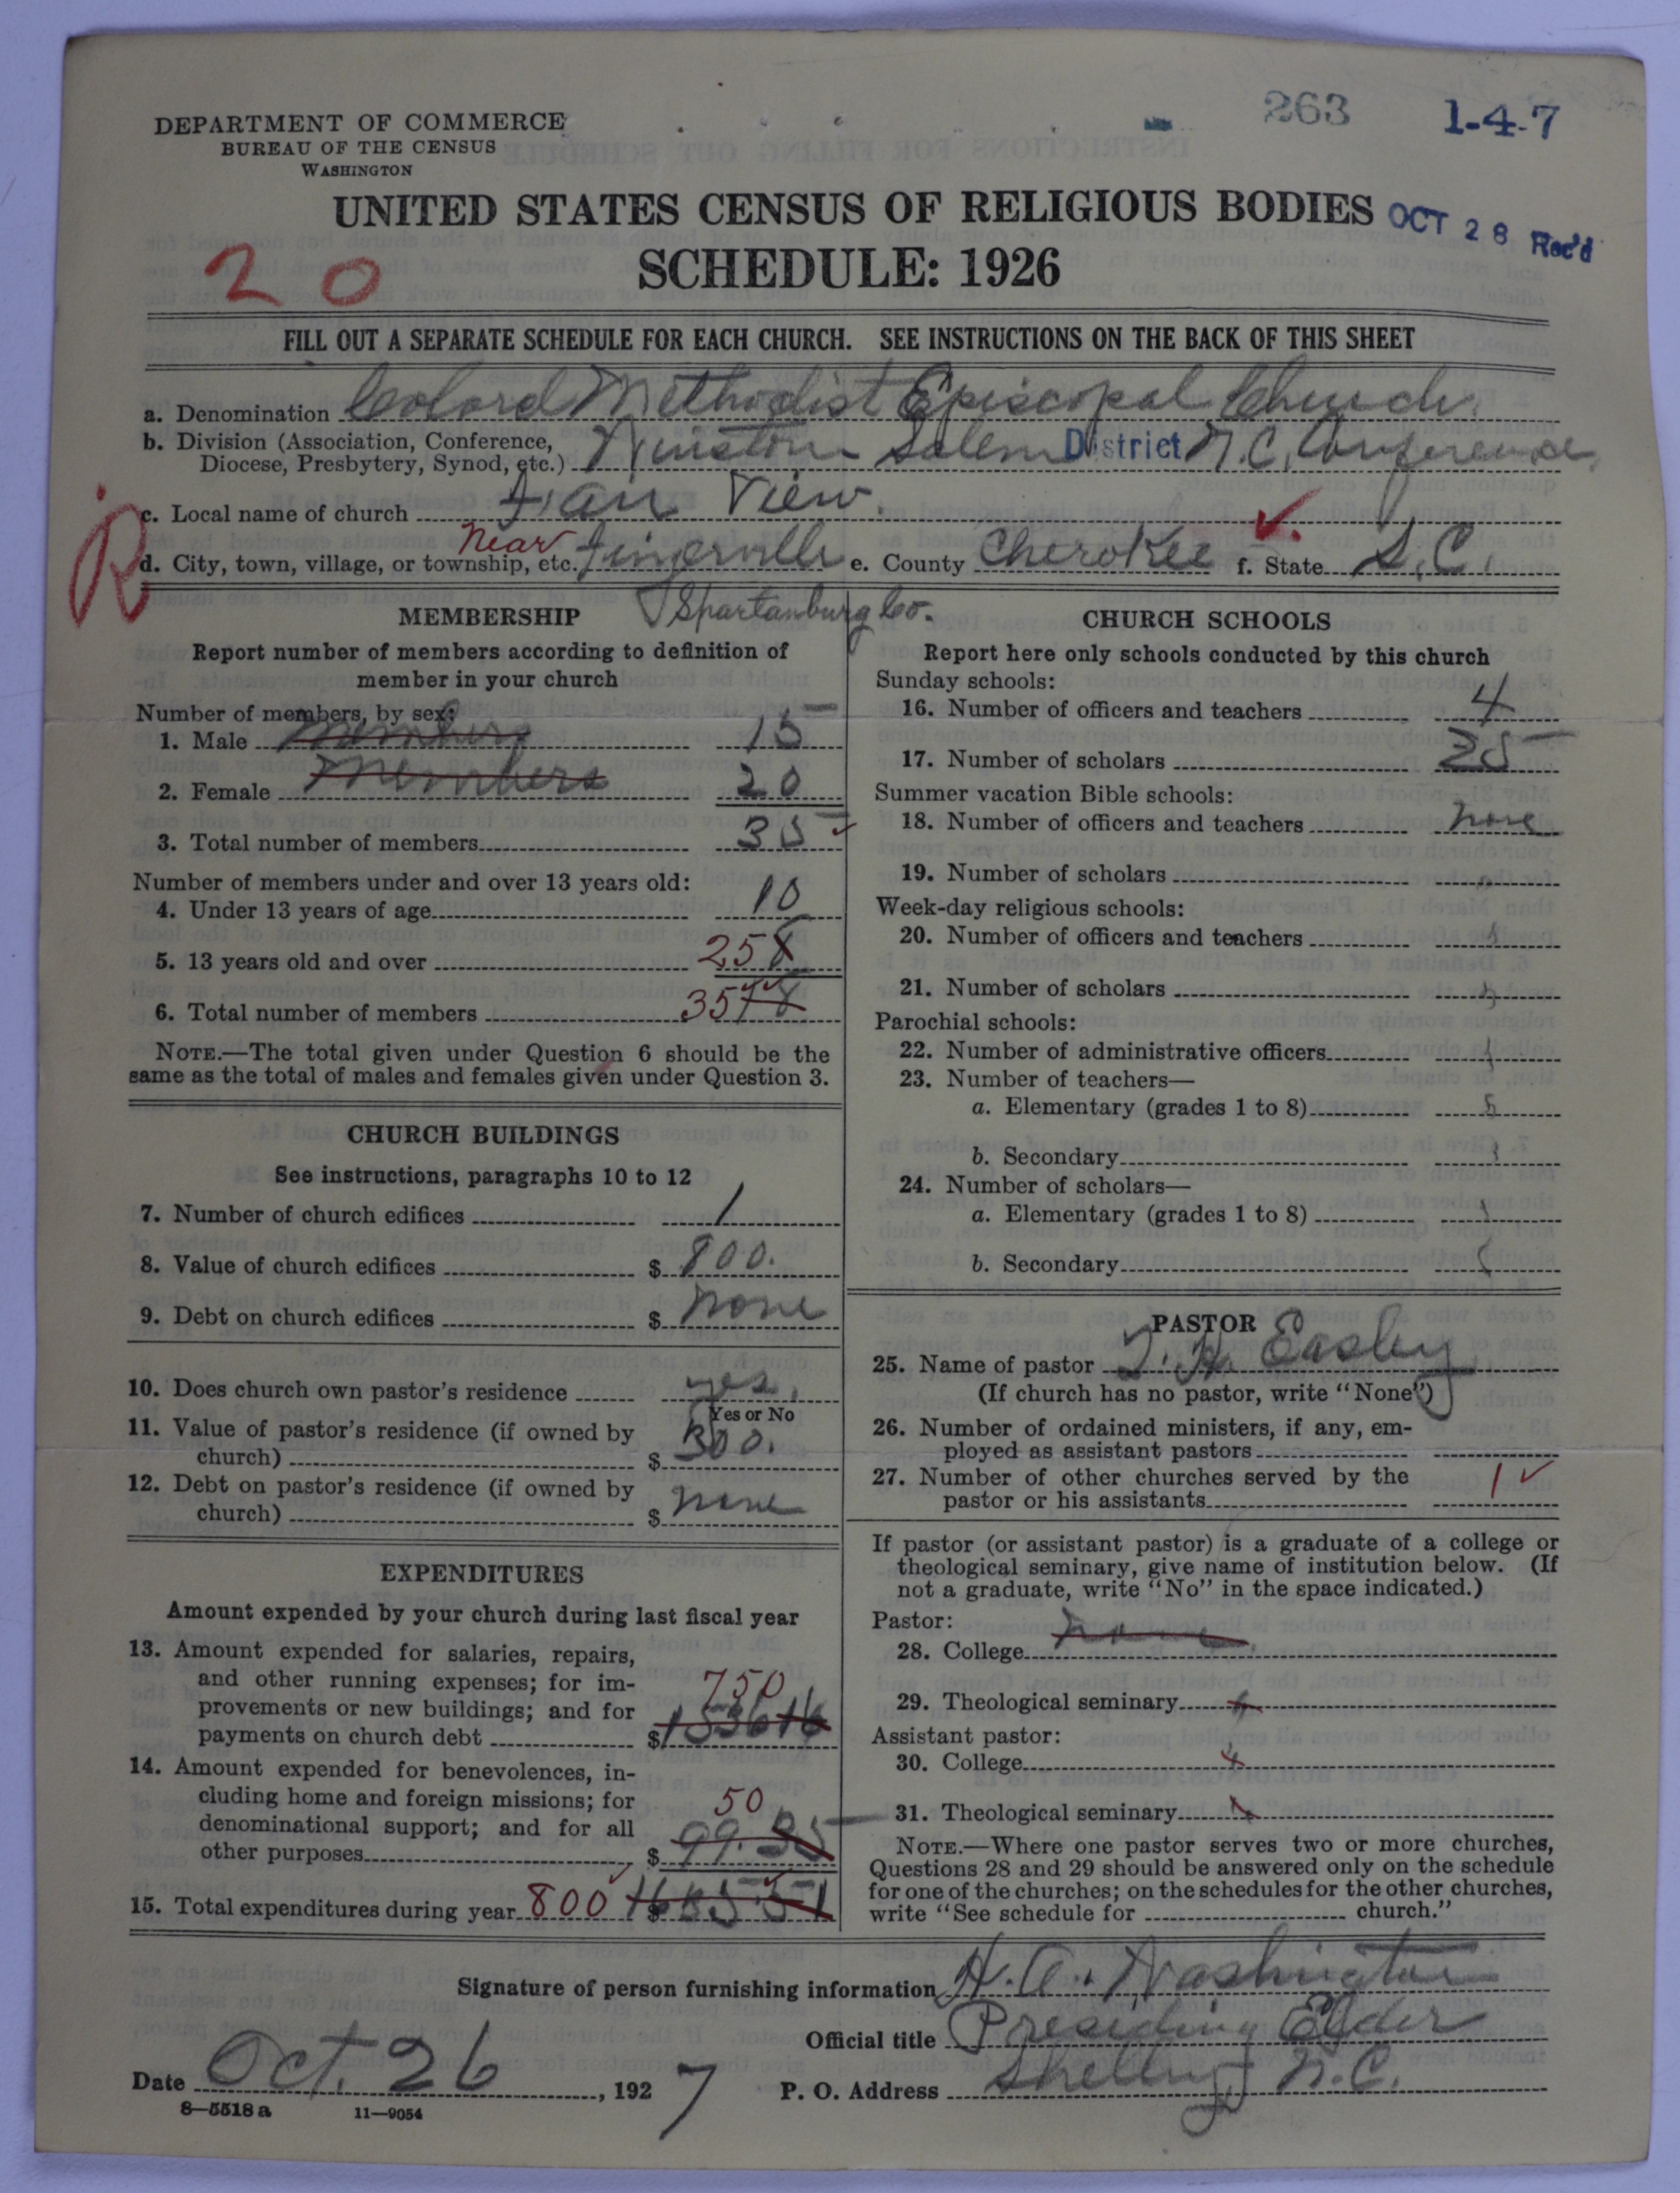 263
1-4-7
DEPARTMENT OF COMMERCE
BUREAU OF THE CENSUS
WASHINGTON
UNITED STATES CENSUS OF RELIGIOUS BODIES
OCT 28 Rec'd
SCHEDULE: 1926
20
FILL OUT A SEPARATE SCHEDULE FOR EACH CHURCH. SEE INSTRUCTIONS ON THE BACK OF THIS SHEET
a. Denomination Colord Methodist Episcopal Church
b. Division (Association, Conference, Diocese, Presbytery, Synod, etc.) Winston Salem District N.C. Conference
c. Local name of church Fair View.
R
d. City, town, village, or township, etc. Near Fingerville e. County Cherokee f. State S.C.
Spartanburg Co.
MEMBERSHIP
Report number of members according to definition of
member in your church
Number of members, by sex:
1. Male members 15
2. Female members 20
3. Total number of members 35
Number of members under and over 13 years old:
4. Under 13 years of age 10
5. 13 years old and over 25
6. Total number of members 35
NOTE.—The total given under Question 6 should be the
same as the total of males and females given under Question 3.
CHURCH BUILDINGS
See instructions, paragraphs 10 to 12
7. Number of church edifices 1
8. Value of church edifices $ 800.
9. Debt on church edifices $ none
10. Does church own pastor's residence yes.
Yes or No
11. Value of pastor's residence (if owned by
church) $ 300.
12. Debt on pastor's residence (if owned by
church) $ none
EXPENDITURES
Amount expended by your church during last fiscal year
13. Amount expended for salaries, repairs,
and other running expenses; for im-
provements or new buildings; and for 750
payments on church debt $ 153616
14. Amount expended for benevolences, in-
cluding home and foreign missions; for 50
denominational support; and for all
other purposes $ 99.35
15. Total expenditures during year 800 $
CHURCH SCHOOLS
Report here only schools conducted by this church
Sunday schools:
16. Number of officers and teachers 4
17. Number of scholars 25
Summer vacation Bible schools:
18. Number of officers and teachers none
19. Number of scholars
Week-day religious schools:
20. Number of officers and teachers
21. Number of scholars
Parochial schools:
22. Number of administrative officers
23. Number of teachers—
a. Elementary (grades 1 to 8)
b. Secondary
24. Number of scholars—
a. Elementary (grades 1 to 8)
b. Secondary
PASTOR
25. Name of pastor J. H. Easley
(If church has no pastor, write "None")
26. Number of ordained ministers, if any, em-
ployed as assistant pastors
27. Number of other churches served by the
pastor or his assistants 1
If pastor (or assistant pastor) is a graduate of a college or
theological seminary, give name of institution below. (If
not a graduate, write "No" in the space indicated.)
Pastor:
28. College none
29. Theological seminary
Assistant pastor:
30. College
31. Theological seminary
NOTE.—Where one pastor serves two or more churches,
Questions 28 and 29 should be answered only on the schedule
for one of the churches; on the schedules for the other churches,
write "See schedule for church."
Signature of person furnishing information H. A. Washington
Official title Presiding Elder
Date Oct. 26, 1927 P. O. Address Shelby N.C.
8—5518 a 11—9054